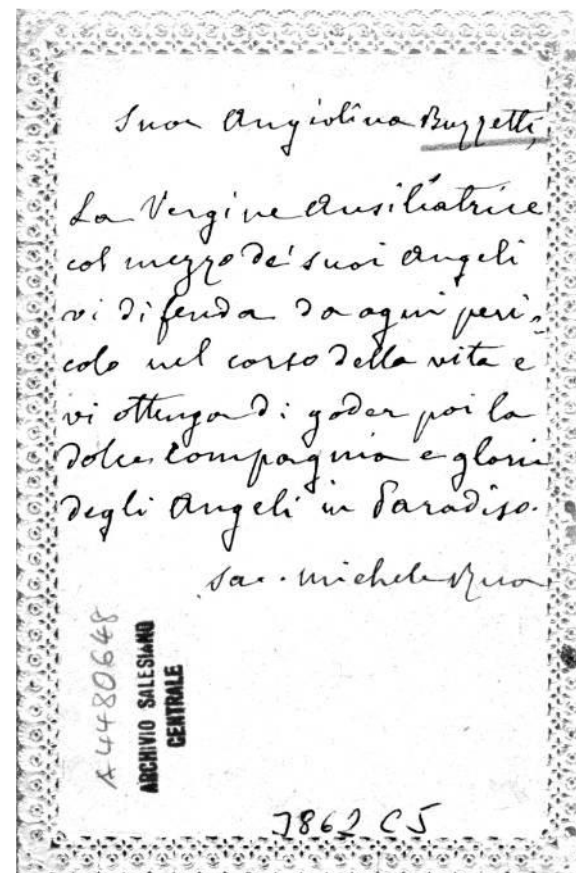 Suor Angiolina Buzzetti,
La Vergine Ausiliatrice
col mezzo de' suoi Angeli
vi difenda da ogni peri=
colo nel corso della vita e
vi ottenga di goder poi la
dolce compagnia e gloria
degli Angeli in Paradiso.
Sac. Michele Rua
A4480648
ARCHIVIO SALESIANO
CENTRALE
3862 C5